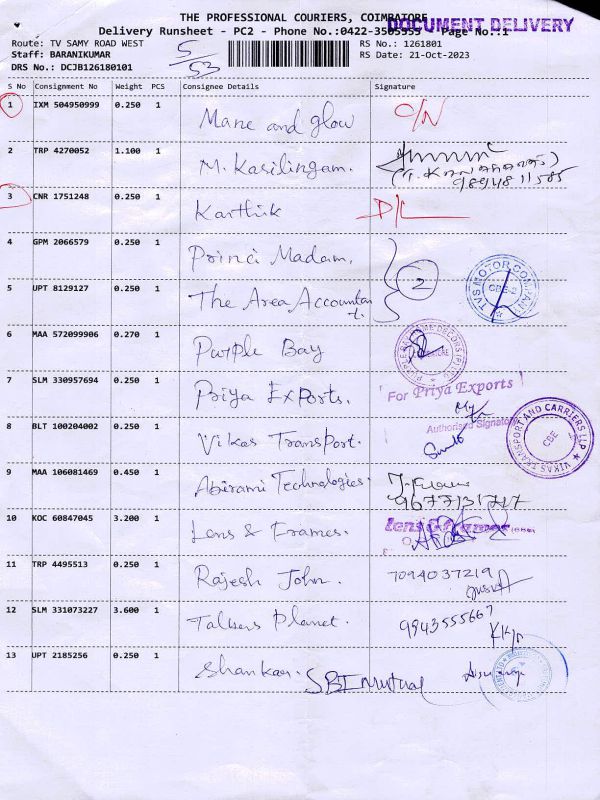 THE PROFESSIONAL COURIERS, COIMBATORE
DOCUMENT DELIVERY
Delivery Runsheet - PC2 - Phone No.:0422-3505555 Page No.:1
Route: TV SAMY ROAD WEST
RS No.: 1261801
Staff: BARANIKUMAR
RS Date: 21-Oct-2023
DRS No.: DCJB126180101
5/53
S No Consignment No Weight PCS Consignee Details Signature
1 IXM 504950999 0.250 1 Mane and glow
2 TRP 4270052 1.100 1 M. Kasilingam.
3 CNR 1751248 0.250 1 Karthik D/L
4 GPM 2066579 0.250 1 Princi Madam.
2
TVS MOTOR COMPANY
CBE-2
5 UPT 8129127 0.250 1 The Area Accountant.
6 MAA 572099906 0.270 1 Purple Bay
7 SLM 330957694 0.250 1 Priya Exports. For Priya Exports
Authorised Signatory
8 BLT 100204002 0.250 1 Vikas Transport.
VIKAS TRANSPORT AND CARRIERS LLP
CBE
9 MAA 106081469 0.450 1 Abirami Technologies.
9677131717
10 KOC 60847045 3.200 1 Lens & Frames. Lens & Frames
11 TRP 4495513 0.250 1 Rajesh John. 7094037219
12 SLM 331073227 3.600 1 Talkers Planet. 9943555667
13 UPT 2185256 0.250 1 Shankar. SBI Mutual